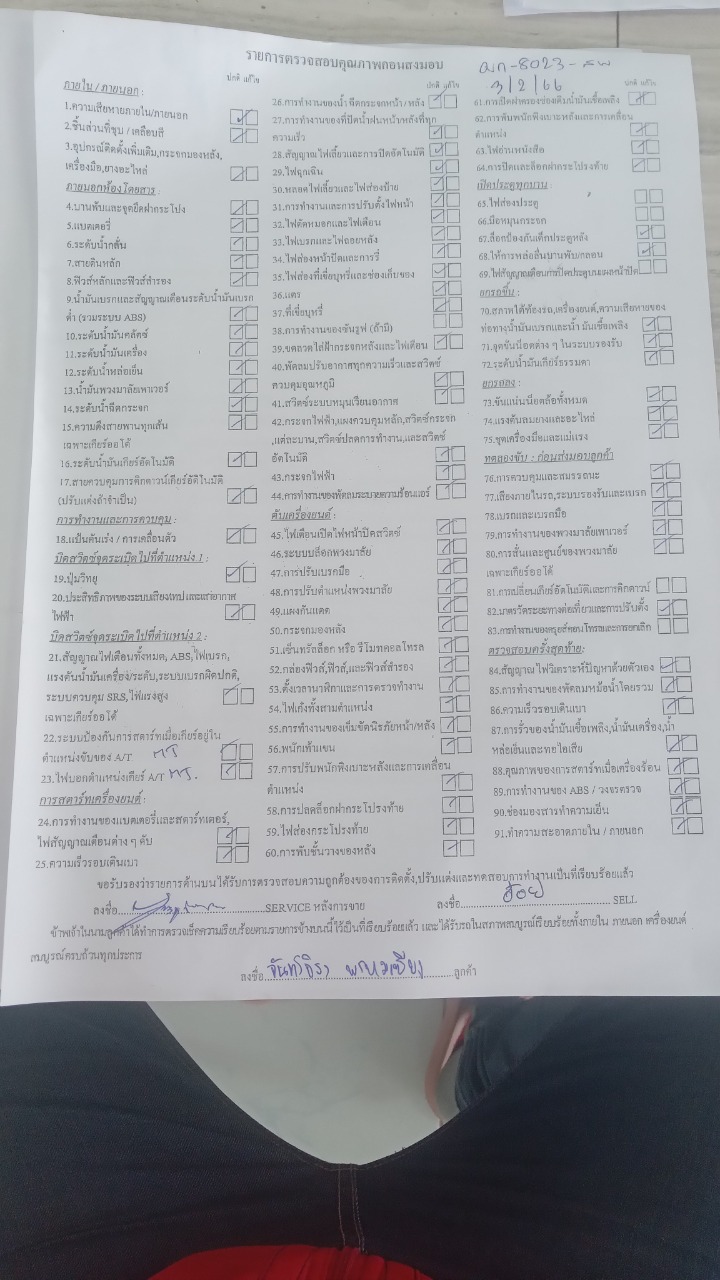 รายการตรวจสอบคุณภาพก่อนส่งมอบ
3/2/66
ภายใน / ภายนอก :
ปกติ แก้ไข
1.ความเสียหายภายใน/ภายนอก
2.ชิ้นส่วนที่ชุบ / เคลือบสี
3.อุปกรณ์ติดตั้งเพิ่มเติม,กระจกมองหลัง,
เครื่องมือ,ยางอะไหล่
ภายนอกห้องโดยสาร :
4.บานพับและจุดยึดฝากระโปรง
5.แบตเตอรี่
6.ระดับน้ำกลั่น
7.สายดินหลัก
8.ฟิวส์หลักและฟิวส์สำรอง
9.น้ำมันเบรกและสัญญาณเตือนระดับน้ำมันเบรก
ต่ำ (รวมระบบ ABS)
10.ระดับน้ำมันคลัตช์
11.ระดับน้ำมันเครื่อง
12.ระดับน้ำหล่อเย็น
13.น้ำมันพวงมาลัยพาวเวอร์
14.ระดับน้ำฉีดกระจก
15.ความตึงสายพานทุกเส้น
เฉพาะเกียร์ออโต้
16.ระดับน้ำมันเกียร์อัตโนมัติ
17.สายควบคุมการคิกดาวน์เกียร์อัติโนมัติ
(ปรับแต่งถ้าจำเป็น)
การทำงานและการควบคุม :
18.แป้นคันเร่ง / การเคลื่อนตัว
บิดสวิตช์จุดระเบิดไปที่ตำแหน่ง 1 :
19.ปุ่มวิทยุ
20.ประสิทธิภาพของระบบเสียงเทปและเสาอากาศ
ไฟฟ้า
บิดสวิตซ์จุดระเบิดไปที่ตำแหน่ง 2 :
21.สัญญาณไฟเตือนทั้งหมด, ABS,ไฟเบรก,
แรงดันน้ำมันเครื่อง/ระดับ,ระบบเบรกผิดปกติ,
ระบบควบคุม SRS,ไฟแรงสูง
เฉพาะเกียร์ออโต้
22.ระบบป้องกันการสตาร์ทเมื่อเกียร์อยู่ใน
ตำแหน่งขับของ A/T MT
23.ไฟบอกตำแหน่งเกียร์ A/T MT.
การสตาร์ทเครื่องยนต์ :
24.การทำงานของแบตเตอรี่และสตาร์ทเตอร์,
ไฟสัญญาณเตือนต่าง ๆ ดับ
25.ความเร็วรอบเดินเบา
ปกติ แก้ไข
26.การทำงานของน้ำฉีดกระจกหน้า / หลัง
27.การทำงานของที่ปัดน้ำฝนหน้า/หลังที่ทุก
ความเร็ว
28.สัญญาณไฟเลี้ยวและการปิดอัตโนมัติ
29.ไฟฉุกเฉิน
30.หลอดไฟเลี้ยวและไฟส่องป้าย
31.การทำงานและการปรับตั้งไฟหน้า
32.ไฟตัดหมอกและไฟเตือน
33.ไฟเบรกและไฟถอยหลัง
34.ไฟส่องหน้าปัดและการหรี่
35.ไฟส่องที่เขี่ยบุหรี่และช่องเก็บของ
36.แตร
37.ที่เขี่ยบุหรี่
38.การทำงานของซันรูฟ (ถ้ามี)
39.ขดลวดไล่ฝ้ากระจกหลังและไฟเตือน
40.พัดลมปรับอากาศทุกความเร็วและสวิตช์
ควบคุมอุณหภูมิ
41.สวิตช์ระบบหมุนเวียนอากาศ
42.กระจกไฟฟ้า,แผงควบคุมหลัก,สวิตช์กระจก
,แต่ละบาน,สวิตช์ปลดการทำงาน,และสวิตช์
อัตโนมัติ
43.กระจกไฟฟ้า
44.การทำงานของพัดลมระบายความร้อนแอร์
ดับเครื่องยนต์ :
45.ไฟเตือนเปิดไฟหน้าปิดสวิตช์
46.ระบบบล็อกพวงมาลัย
47.การปรับเบรกมือ
48.การปรับตำแหน่งพวงมาลัย
49.แผงกันแดด
50.กระจกมองหลัง
51.เซ็นทรัลล็อก หรือ รีโมทคอลโทรล
52.กล่องฟิวส์,ฟิวส์,และฟิวส์สำรอง
53.ตั้งเวลานาฬิกาและการตรวจทำงาน
54.ไฟเก๋งทั้งสามตำแหน่ง
55.การทำงานของเข็มขัดนิรภัยหน้า/หลัง
56.พนักเท้าแขน
57.การปรับพนักพิงเบาะหลังและการเคลื่อน
ตำแหน่ง
58.การปลดล็อกฝากระโปรงท้าย
59.ไฟส่องกระโปรงท้าย
60.การพับชั้นวางของหลัง
ปกติ แก้ไข
61.การเปิดฝาครอบช่องเติมน้ำมันเชื้อเพลิง
62.การพับพนักพิงเบาะหลังและการเคลื่อน
ตำแหน่ง
63.ไฟอ่านหนังสือ
64.การปิดและล็อกฝากระโปรงท้าย
เปิดประตูทุกบาน :
65.ไฟส่องประตู
66.มือหมุนกระจก
67.ล็อกป้องกันเด็กประตูหลัง
68.ให้การหล่อลื่นบานพับ/กลอน
69.ไฟสัญญาณเตือนการปิดประตูบนแผงหน้าปัด
ยกรถขึ้น :
70.สภาพใต้ท้องรถ,เครื่องยนต์,ความเสียหายของ
ท่อทางน้ำมันเบรกและน้ำมันเชื้อเพลิง
71.จุดขันน็อตต่าง ๆ ในระบบรองรับ
72.ระดับน้ำมันเกียร์ธรรมดา
ยกรถลง :
73.ขันแน่นน็อตล้อทั้งหมด
74.แรงดันลมยางและอะไหล่
75.ชุดเครื่องมือและแม่แรง
ทดลองขับ : ก่อนส่งมอบลูกค้า
76.การควบคุมและสมรรถนะ
77.เสียงภายในรถ,ระบบรองรับและเบรก
78.เบรกและเบรกมือ
79.การทำงานของพวงมาลัยพาวเวอร์
80.การสั่นและศูนย์ของพวงมาลัย
เฉพาะเกียร์ออโต้
81.การเปลี่ยนเกียร์อัตโนมัติและการคิกดาวน์
82.มาตรวัดระยะทางต่อเที่ยวและการปรับตั้ง
83.การทำงานของครุยส์คอนโทรลและการยกเลิก
ตรวจสอบครั้งสุดท้าย:
84.สัญญาณ ไฟวิเคราะห์ปัญหาด้วยตัวเอง
85.การทำงานของพัดลมหม้อน้ำโดยรวม
86.ความเร็วรอบเดินเบา
87.การรั่วของน้ำมันเชื้อเพลิง,น้ำมันเครื่อง,น้ำ
หล่อเย็นและทอไอเสีย
88.คุณภาพของการสตาร์ทเมื่อเครื่องร้อน
89.การทำงานของ ABS / วงจรตรวจ
90.ช่องมองสารทำความเย็น
91.ทำความสะอาดภายใน / ภายนอก
ขอรับรองว่ารายการด้านบนได้รับการตรวจสอบความถูกต้องของการติดตั้ง,ปรับแต่งและทดสอบการทำงานเป็นที่เรียบร้อยแล้ว
ลงชื่อ SERVICE หลังการขาย ลงชื่อ SELL
ข้าพเจ้าในนามลูกค้าได้ทำการตรวจเช็คความเรียบร้อยตามรายการข้างบนนี้ไว้เป็นที่เรียบร้อยแล้ว และได้รับรถในสภาพสมบูรณ์เรียบร้อยทั้งภายใน ภายนอก เครื่องยนต์
สมบูรณ์ครบถ้วนทุกประการ
ลงชื่อ ลูกค้า